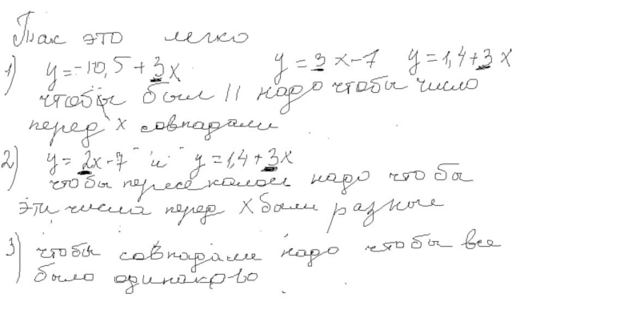 Так это легко
1) y=-10,5+3x y=3x-7 y=1,4+3x
чтобы был || надо чтобы число
перед x совпадали
2) y=2x-7 "и" y=1,4+3x
чтобы пересекались надо чтобы
эти числа перед x были разные
3) чтобы совпадали надо чтобы все
было одинаково